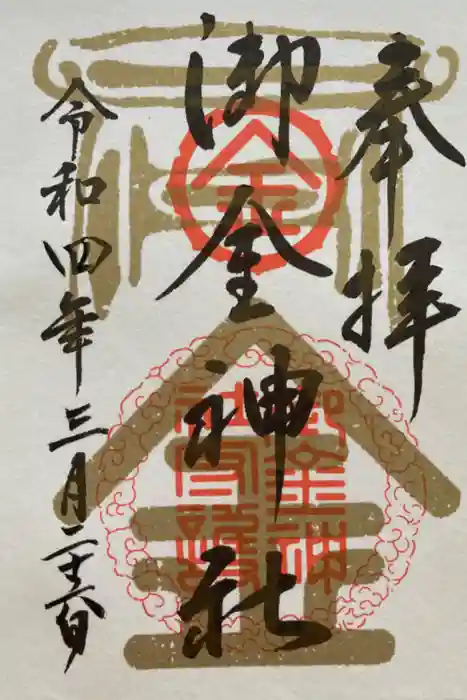 奉拝
御金神社
令和四年三月二十六日
金
御金神社印璽